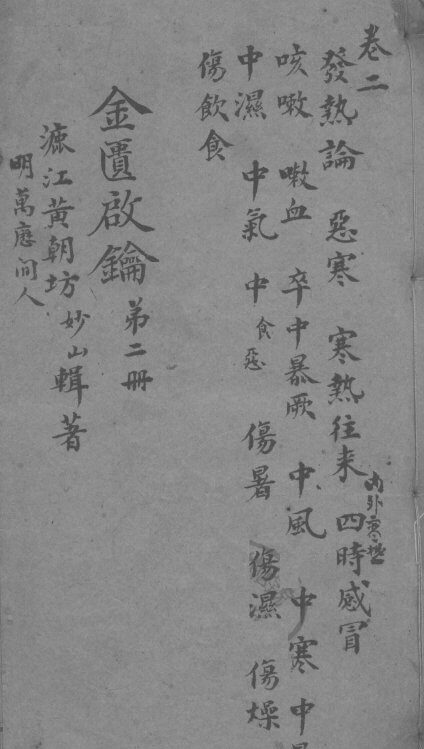 卷二
發熱論 惡寒 寒熱往来 四時感冒
内外
咳嗽 嗽血 卒中暴厥 中風 中寒 中
中濕 中氣 中食惡 傷暑 傷濕 傷燥
傷飲食
金匱啟鑰 第二冊
漉江黃朝坊妙山輯著
明萬厯间人